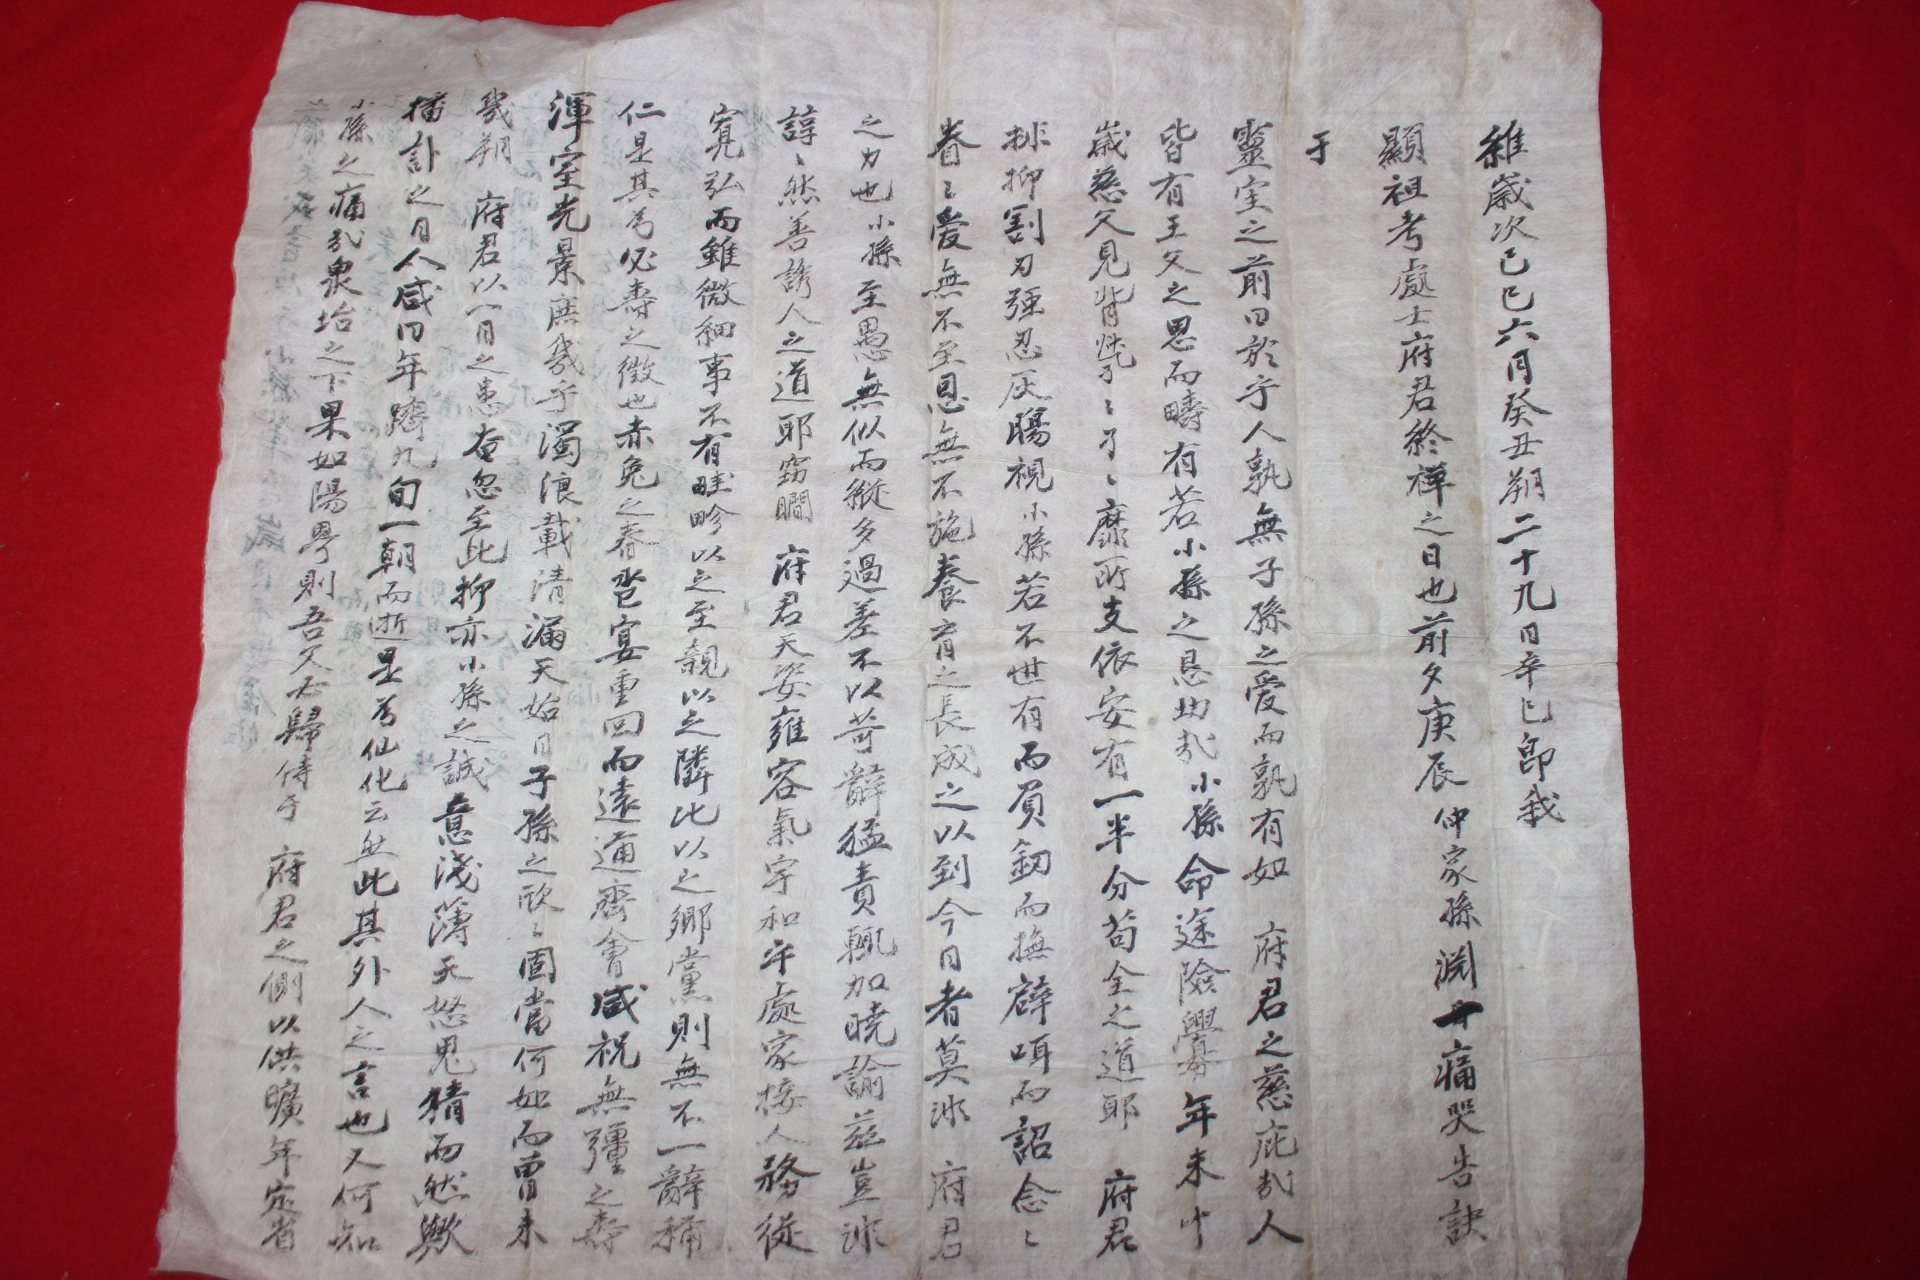 維歲次己巳六月癸丑朔二十九日辛巳即我
顯祖考處士府君終禫之日也前夕庚辰仲家孫淵 痛哭告訣
于
靈室之前曰於乎人孰無子孫之愛而孰有如 府君之慈庇哉人
皆有王父之恩而疇有若小孫之恳切哉小孫命途險釁年未卄
歲慈父見背煢〻孑〻靡所支依安有一半分苟全之道耶 府君
排抑割刃強忍灰腸視小孫若不世有而負劒而撫辟咡而詔念〻
眷〻愛無不至恩無不施養育之長成之以到今日者莫非 府君
之力也小孫至愚無似而縱多過差不以苛辭猛責輒加曉諭茲豈非
諄〻然善誘人之道耶窃瞯 府君天姿雍容氣宇和平處家接人務從
寬弘而雖微細事不有畦畛以之至親以之隣比以之鄉黨則無不一辭稱
仁是其爲必壽之徵也赤兔之春卺宴重回而遠邇齊會咸祝無彊之壽
渾室光景庶幾乎濁浪載清漏天始日子孫之欣〻固當何如而曾未
幾朔 府君以一日之患奄忽至此抑亦小孫之誠意淺薄天怒鬼猜而然歟
播訃之日人咸曰年躋九旬一朝而逝是爲仙化云然此其外人之言也又何知
小孫之痛哉泉坮之下果如陽界則吾父必歸侍于 府君之側以供曠年定省